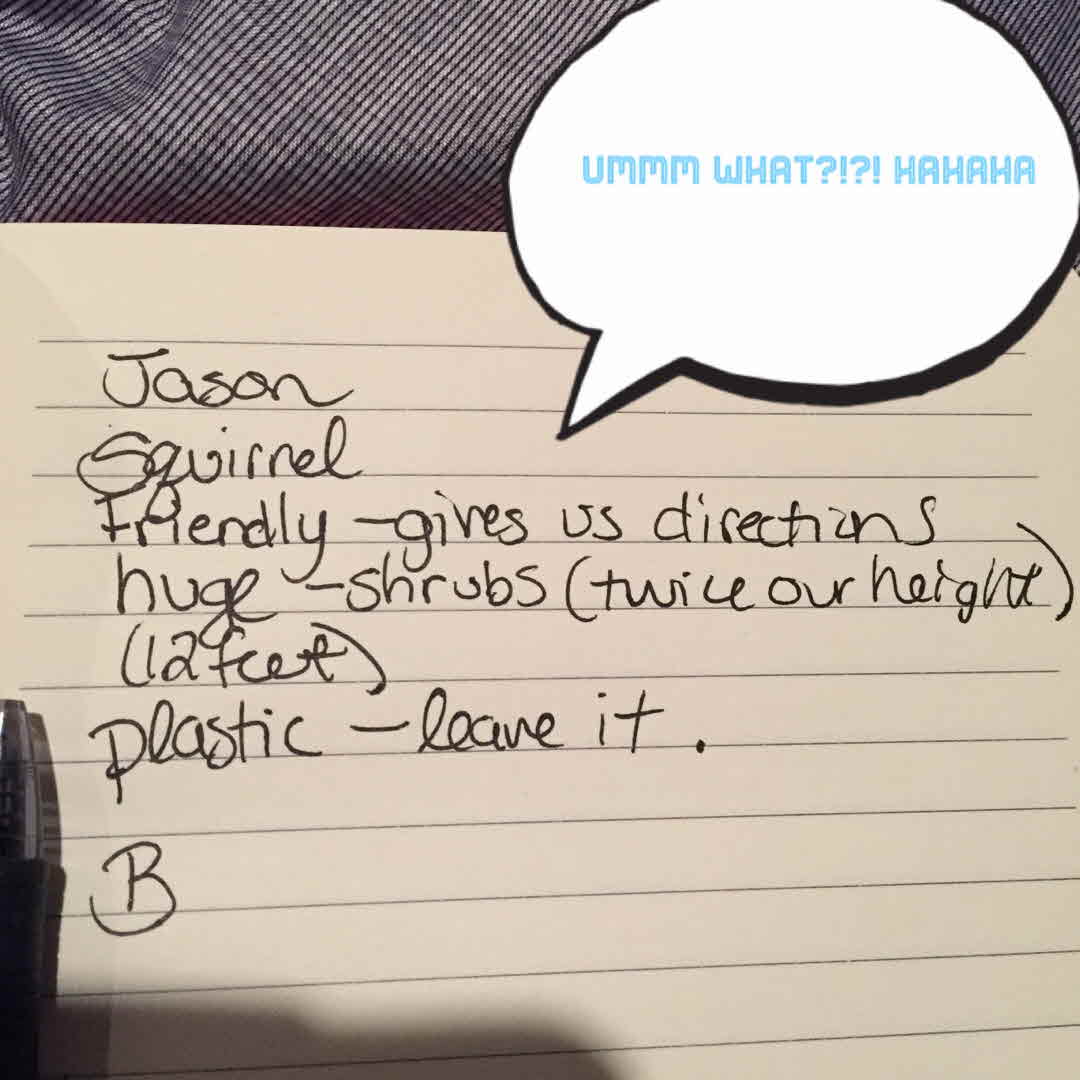 UMMM WHAT?!?! HAHAHA
Jason
Squirrel
Friendly - gives us directions
huge - shrubs (twice our height)
(12 feet)
plastic - leave it.
B